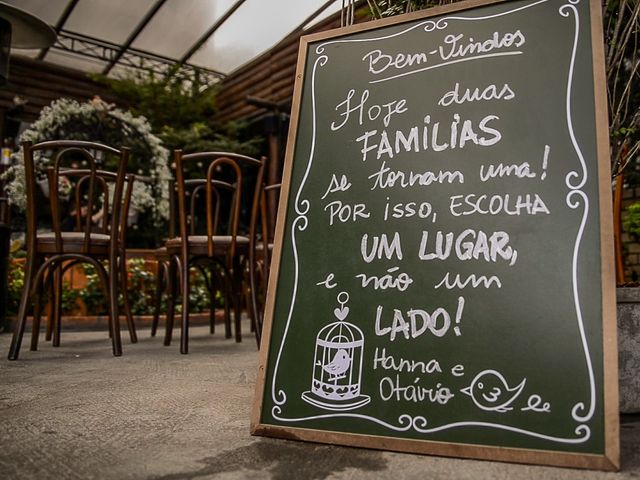 Bem-Vindos
Hoje duas
FAMíLiAS
se tornam uma!
POR isso, ESCOLHA
UM LUGAR,
e não um
LADO!
Hanna e
Otávio